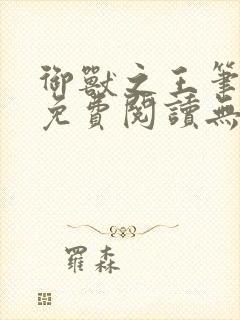 御獸之王筆
免費閱讀無
羅森